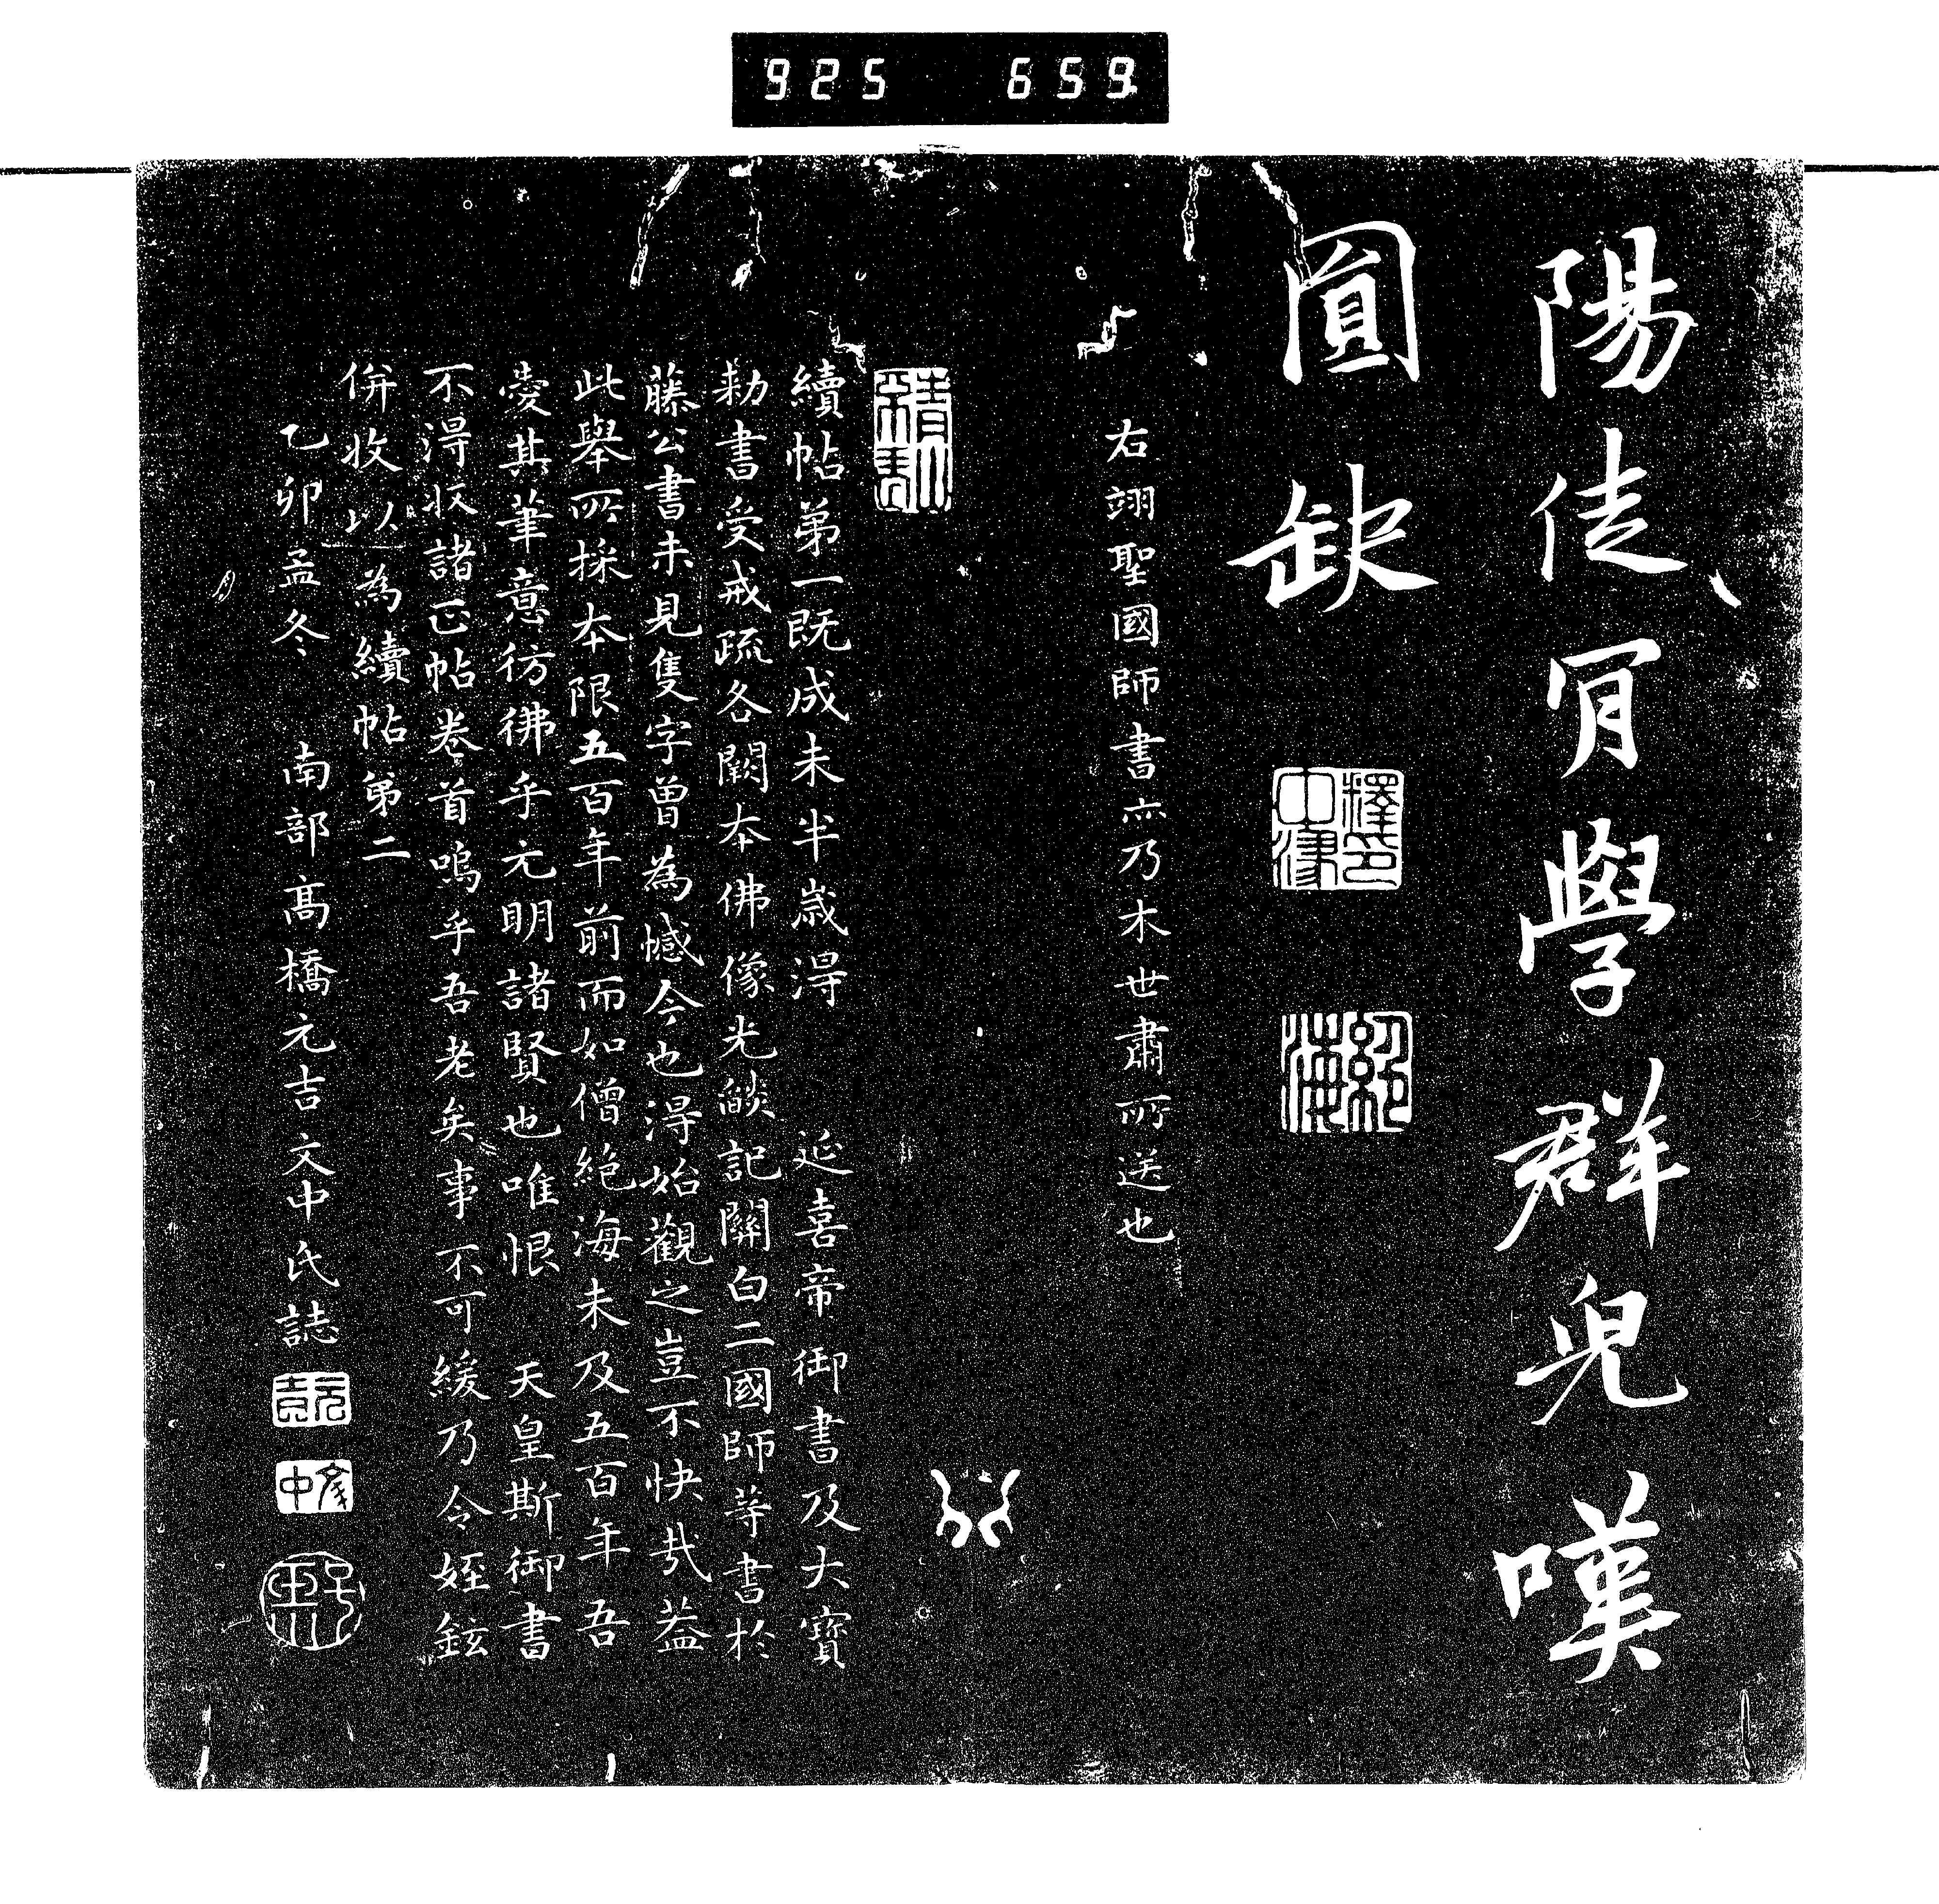 925 659
陽徒肎學群兒嘆
圓缺
釋印中津
絕海
右翊聖國師書亦乃木世肅所送也
續帖第一既成未半歲得 延喜帝御書及大寶
勅書受戒疏各闕本佛像光燄記關白二國師等書於
藤公書未見隻字曾為憾今也得始觀之豈不快哉蓋
此舉所採本限五百年前而如僧絕海未及五百年吾
愛其筆意彷彿乎元明諸賢也唯恨 天皇斯御書
不得收諸正帖卷首嗚乎吾老矣事不可緩乃令姪鉉
併收以為續帖第二
乙卯孟冬 南部高橋元吉文中氏誌
元吉
文中